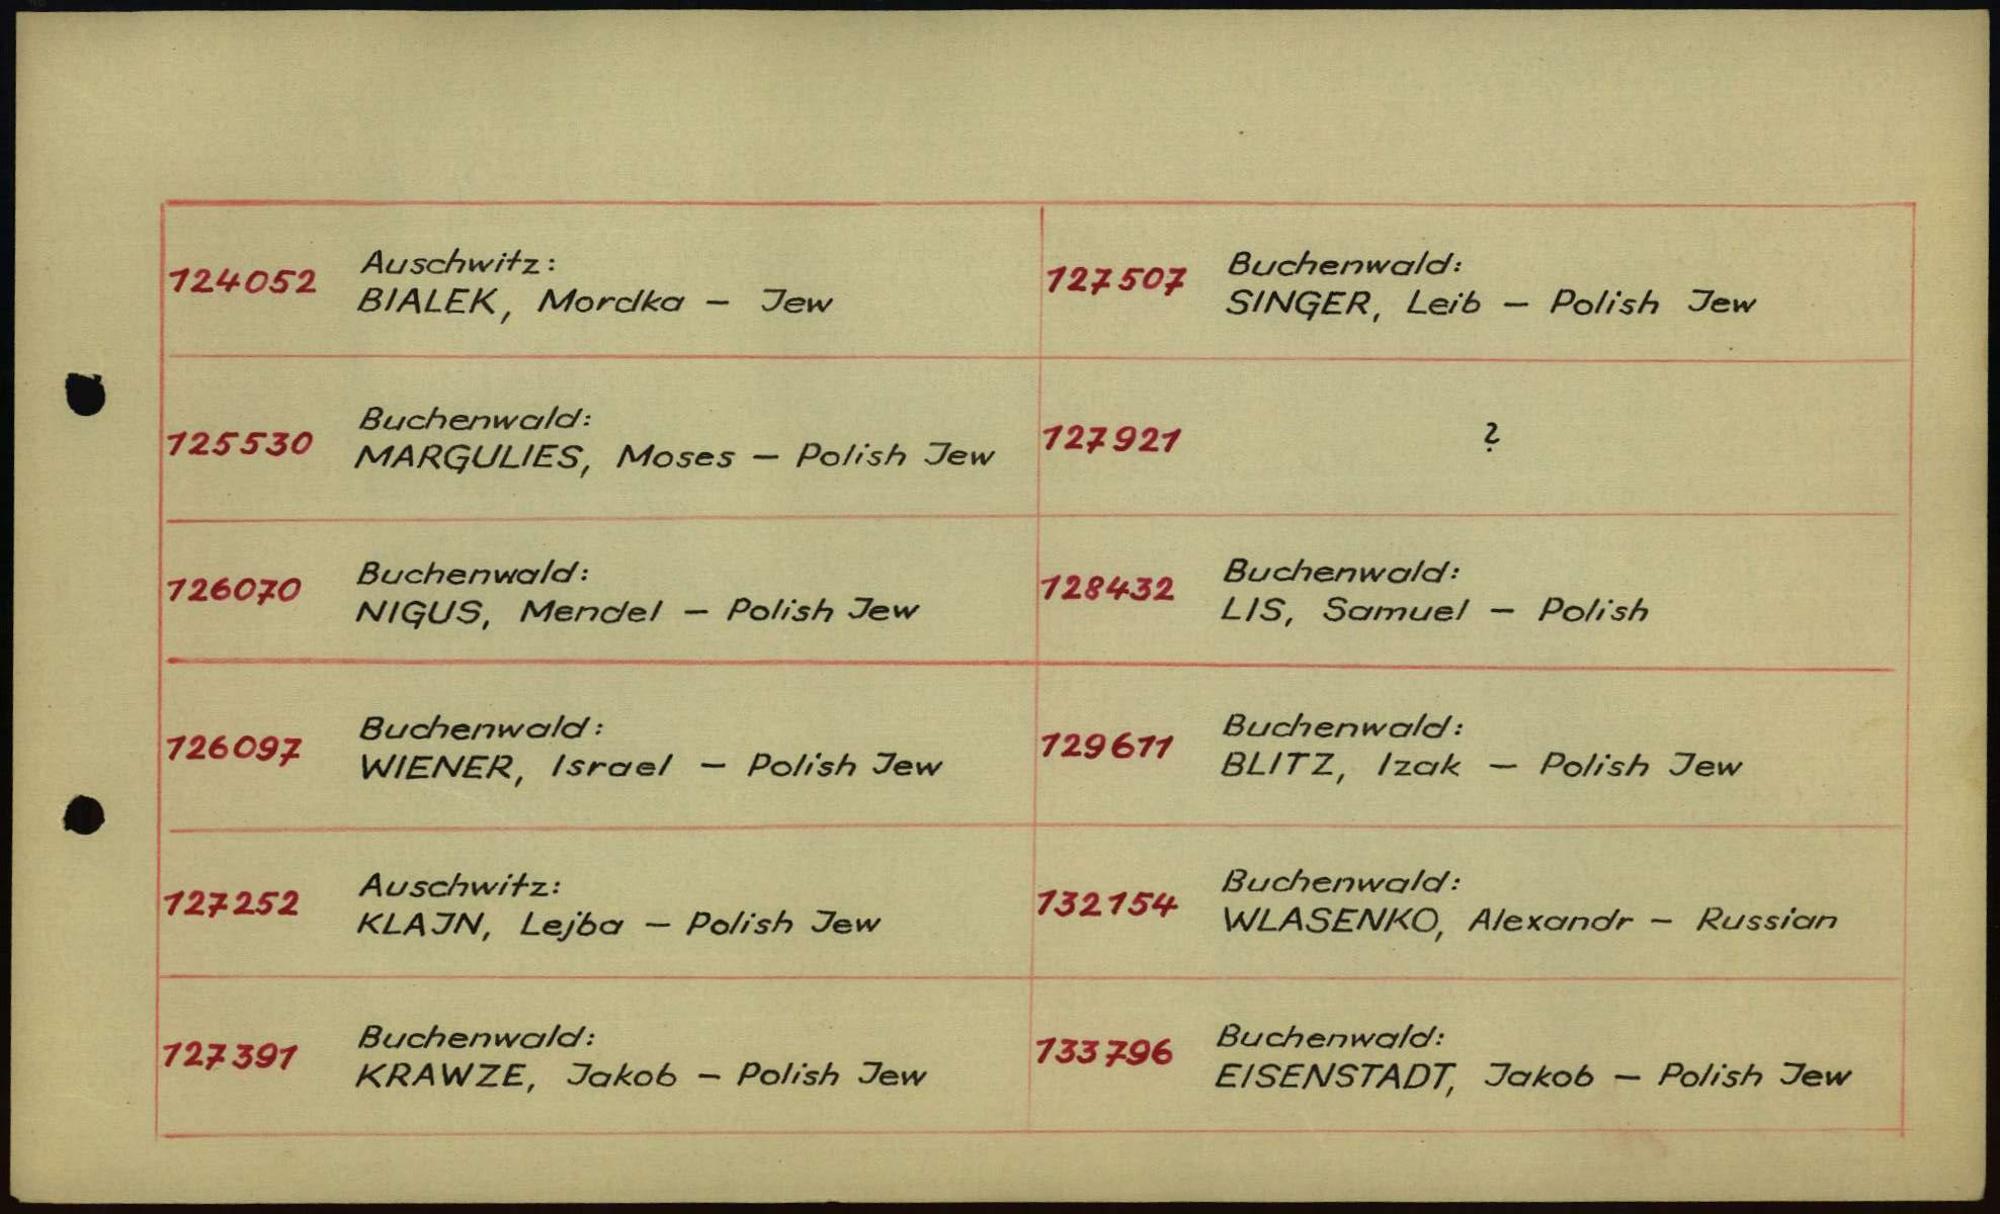 124052
Auschwitz:
BIALEK, Mordka – Jew
125530
Buchenwald:
MARGULIES, Moses – Polish Jew
126070
Buchenwald:
NIGUS, Mendel – Polish Jew
126097
Buchenwald:
WIENER, Israel – Polish Jew
127252
Auschwitz:
KLAJN, Lejba – Polish Jew
127391
Buchenwald:
KRAWZE, Jakob – Polish Jew
127507
Buchenwald:
SINGER, Leib – Polish Jew
127921
?
128432
Buchenwald:
LIS, Samuel – Polish
129611
Buchenwald:
BLITZ, Izak – Polish Jew
132154
Buchenwald:
WLASENKO, Alexandr – Russian
133796
Buchenwald:
EISENSTADT, Jakob – Polish Jew